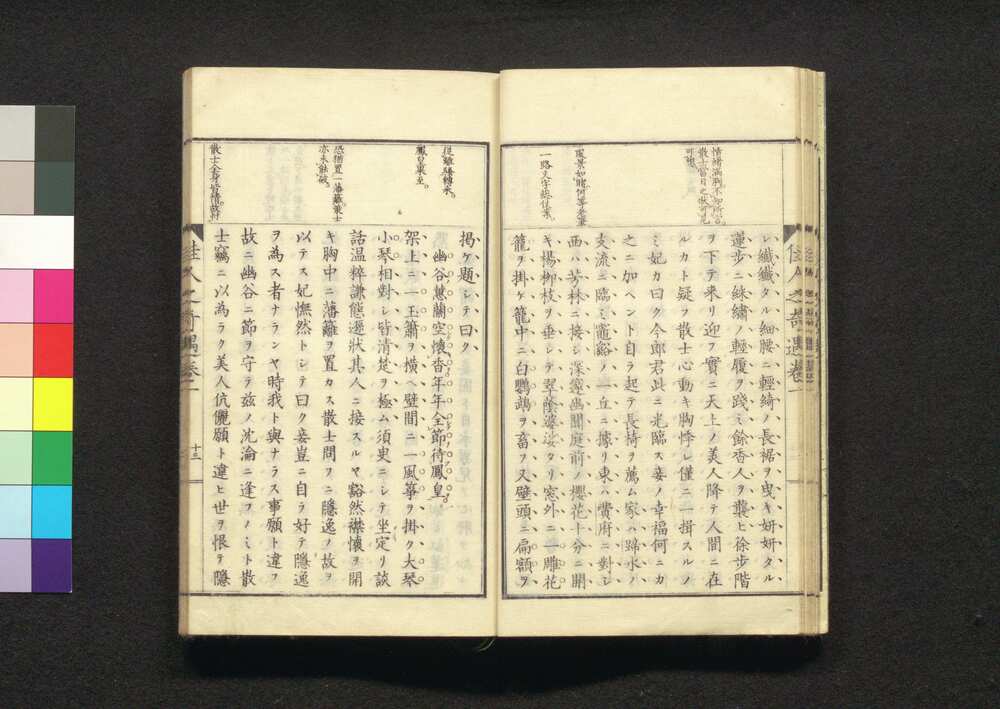 佳人之奇遇卷一
シ纖纖タル細腰ニ輕綺ノ長裾ヲ曳キ妍妍タル
蓮步ニ絲繡ノ輕履ヲ踐ミ餘香人ヲ襲ヒ徐步階
ヲ下テ来リ迎フ實ニ天上ノ美人降テ人間ニ在
ルカト疑ヲ散士心動キ胸悸シ僅ニ一揖スルノ
ミ妃カ曰ク今郎君此ニ光臨ス妾ノ幸福何ニカ
之ニ加ヘント自ラ起テ長椅ヲ薦ム家ハ蹄水ノ
支流ニ臨ミ竈谿ノ一丘ニ據リ東ハ費府ニ對シ
西ハ芳林ニ接シ深邃幽閑庭前ノ櫻花十分ニ開
キ楊柳枝ヲ垂レテ翠蔭婆娑タリ窓外ニ一雕花
籠ヲ掛ケ籠中ニ白鸚鵡ヲ畜ヲ又壁頭ニ扁額ヲ
一路文字總佳景。
揭ケ題シテ曰ク
幽谷蕙蘭空懷香年年全節待鳳皇。
架上ニ一玉簫ヲ橫ヘ壁間ニ一風箏ヲ掛ク大琴
小琴相對シ皆清楚ヲ極ム須臾ニシテ坐定リ談
話温粹謙態遜狀其人ニ接スルヤ豁然襟懷ヲ開
キ胸中ニ藩籬ヲ置カス散士問フニ隱逸ノ故ヲ
以テス妃憮然トシテ曰ク妾豈ニ自ラ好テ隱逸
ヲ為ス者ナランヤ時我ト與ナラス事願ト違フ
故ニ幽谷ニ節ヲ守テ茲ノ沈淪ニ逢フノミト散
士竊ニ以為ラク美人伉儷願ト違ヒ世ヲ恨テ隱
鳳皇來至。
恐猶置一藩籬。散士
亦未能破。
佳人之奇遇卷一
十三